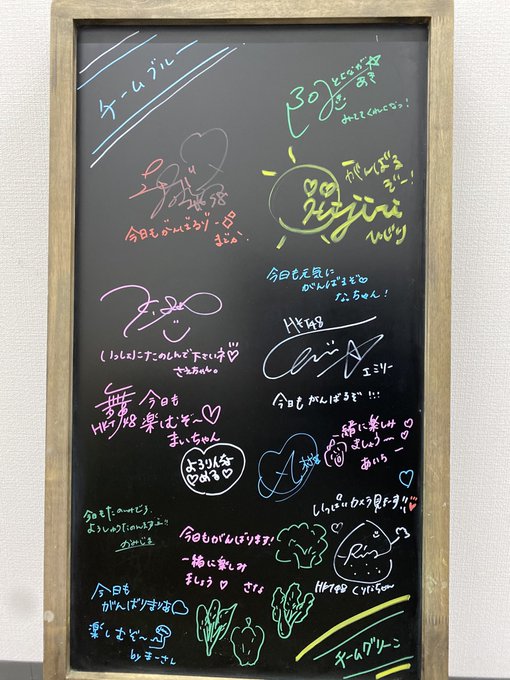 チームブルー
とみなが
あき
みててくれんになっ!
HKT48
今日もがんばるゾー
まどか
がんばる
ぞー!
Hijiri
ひじり
今日も元気に
がんばるぞ♡
なっちゃん!
いっしょにたのしんで下さいネ♡
さえちゃん。
HKT48
エミリー
今日もがんばるぞ!!!
舞
HKT48
今日も
楽むぞ〜♡
まいちゃん
よろりんな
♡める♡
一緒に楽しみ
ましょう〜
あいら
いっぱいカメラ見よーす!!
今日もがんばります!
一緒に楽しみ
ましょう♡
さな
Rin
HKT48 くりなちゃん
今日も
がんばりまりあ♡
楽しむぞ〜
by まーさん
チームグリーン